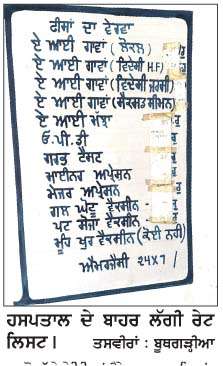 ਫੀਸਾਂ ਦਾ ਵੇਰਵਾ
ਏ ਆਈ ਗਾਵਾਂ (ਲੋਕਲ)
ਏ ਆਈ ਗਾਵਾਂ (ਵਿਦੇਸ਼ੀ H.F)
ਏ ਆਈ ਗਾਵਾਂ (ਵਿਦੇਸ਼ੀ ਜਰਸੀ)
ਏ ਆਈ ਗਾਵਾਂ (ਸੈਕਸਡ ਸੀਮਨ)
ਏ ਆਈ ਮੱਝਾਂ
ਓ.ਪੀ.ਡੀ
ਗਰਭ ਟੈਸਟ
ਮਾਈਨਰ ਆਪ੍ਰੇਸ਼ਨ
ਮੇਜਰ ਆਪ੍ਰੇਸ਼ਨ
ਗਲ ਘੋਟੂ ਵੈਕਸੀਨ
ਪਟ ਸੋਜਾ ਵੈਕਸੀਨ
ਮੂੰਹ ਖੁਰ ਵੈਕਸੀਨ (ਕੋਈ ਨਹੀਂ)
24X7
ਹਸਪਤਾਲ ਦੇ ਬਾਹਰ ਲੱਗੀ ਰੇਟ
ਲਿਸਟ। ਤਸਵੀਰਾਂ : ਬੂਥਗੜ੍ਹੀਆ